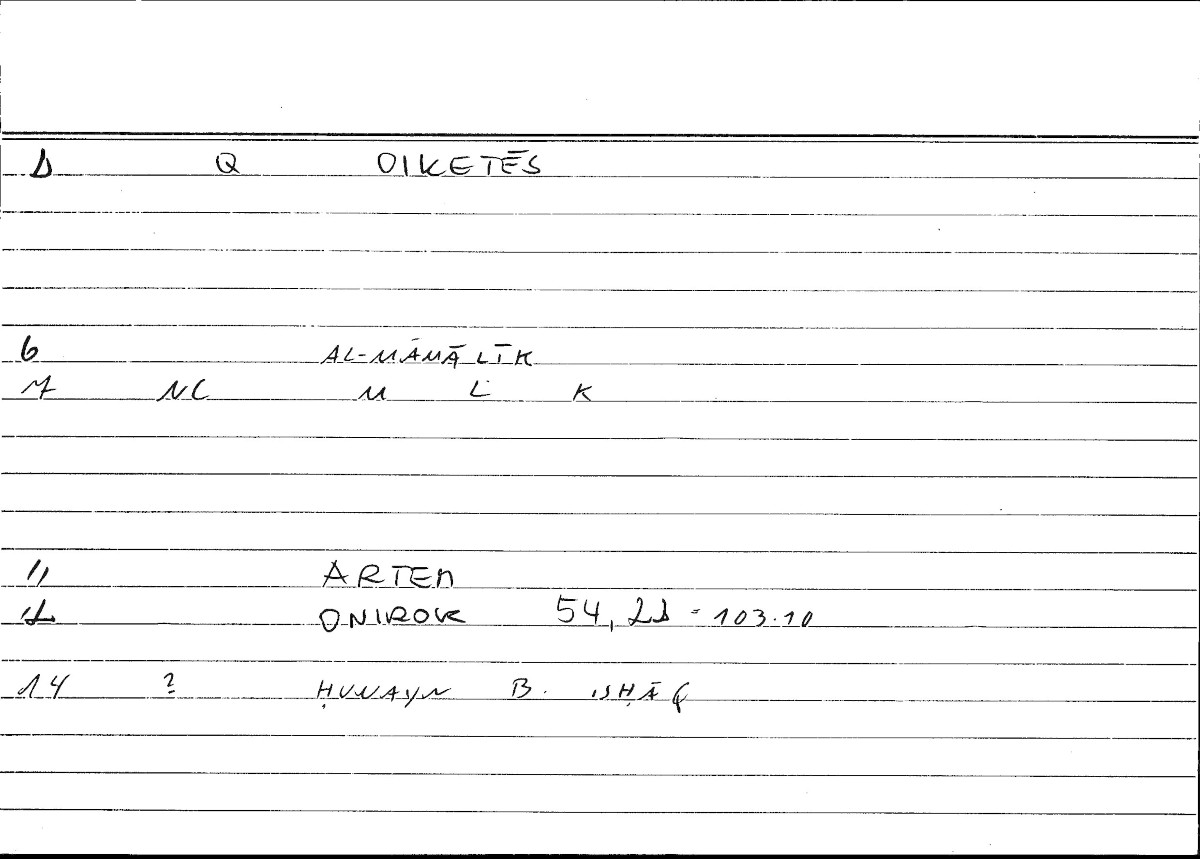 1 Q OIKETĒS
6 AL-MĀMĀLĪK
7 NC M L K
11 ARTEM
12 ONIROK 54, 21 - 103.10
14 ? ḤUNAYN B. ISḤĀQ